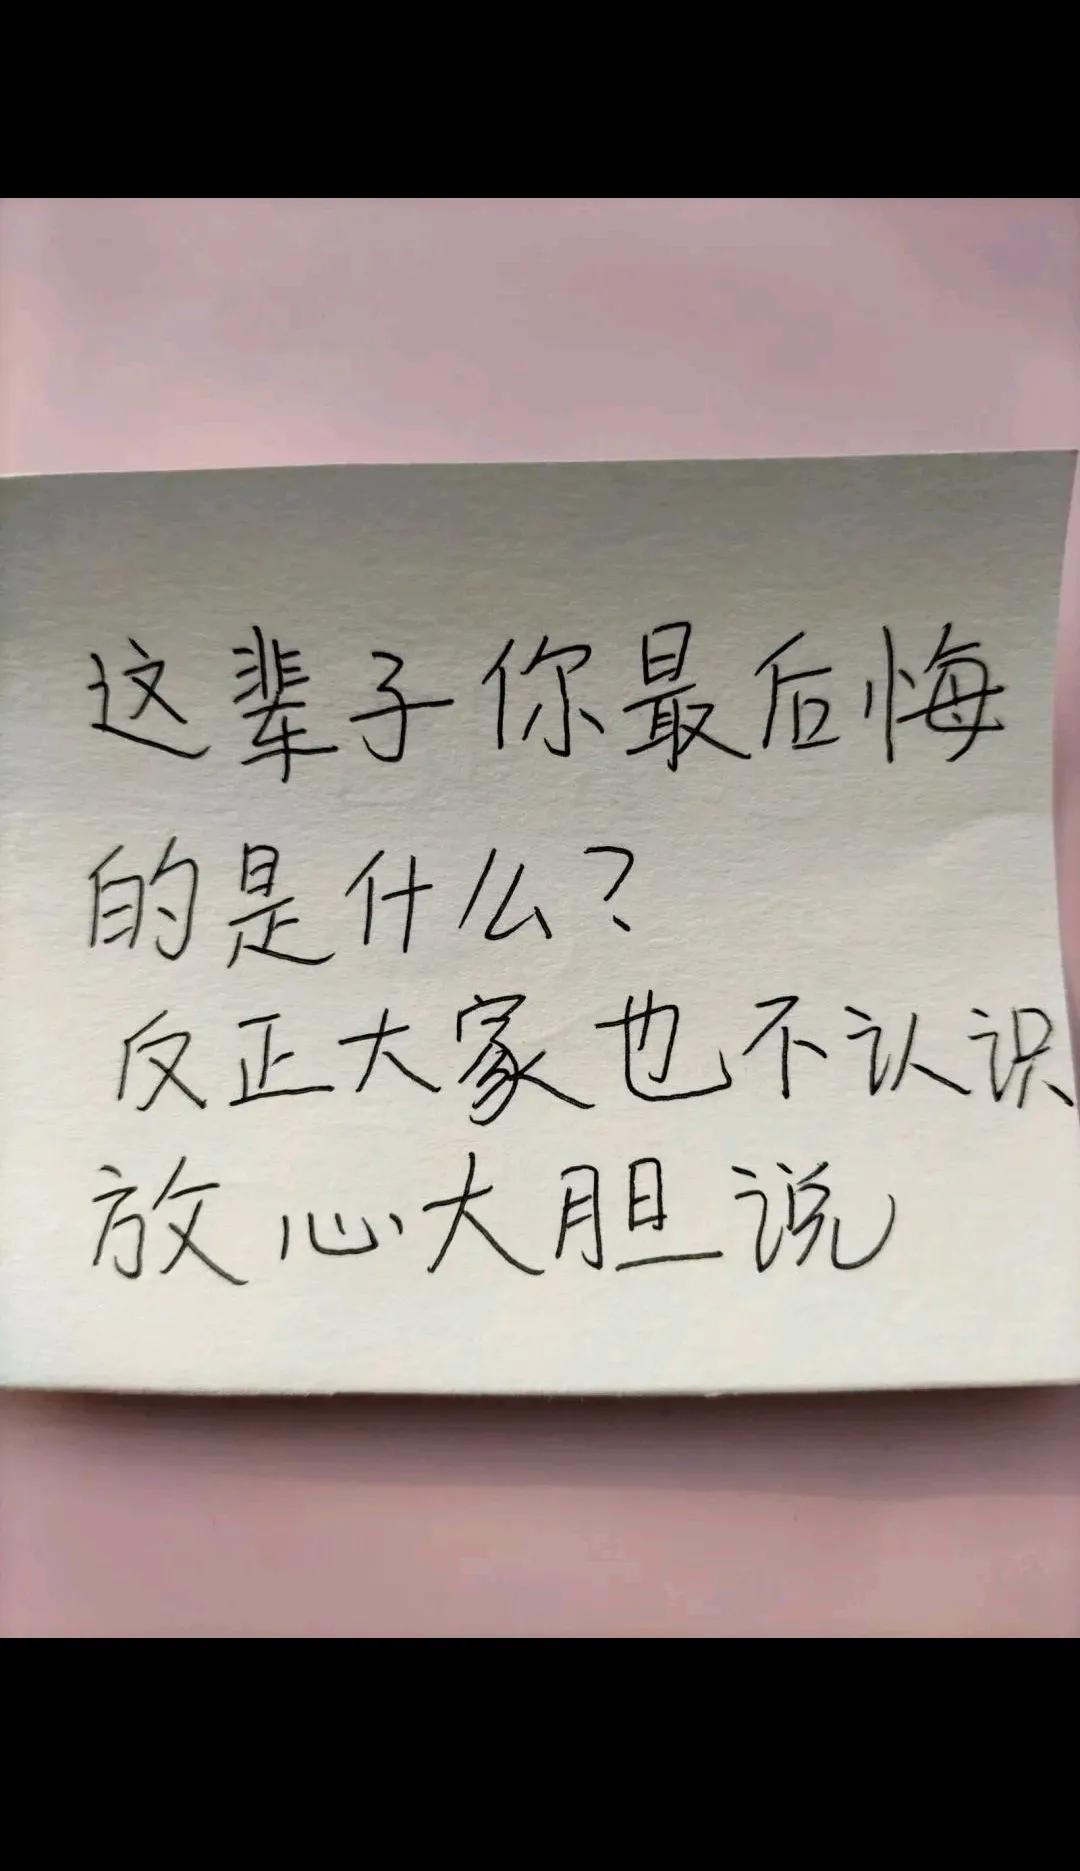 这辈子你最后悔
的是什么？
反正大家也不认识
放心大胆说